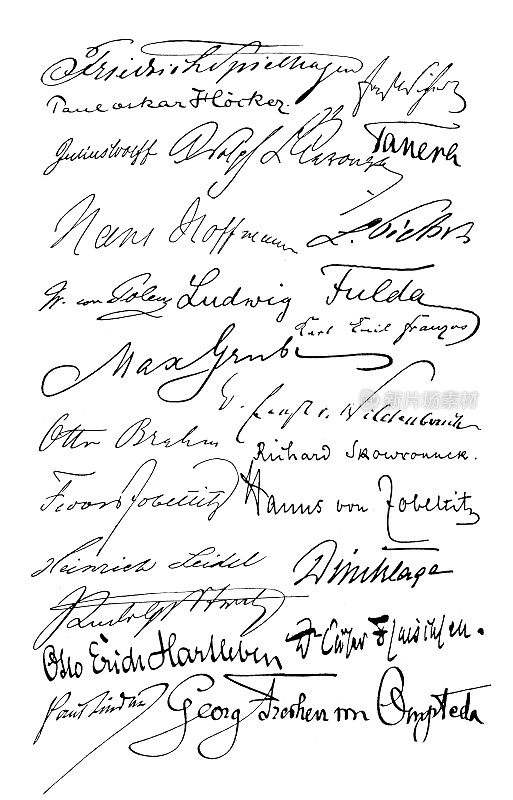 Friedrich Spielhagen
Paul oskar Höcker.
Julius Wolff Adolf L'Arronge Tanera
Hans Hoffmann L. Pietsch
W. von Polenz Ludwig Fulda
Karl Emil Franzos
Max Grube
E. Ernst v. Wildenbruch
Otto Brahm
Richard Skowronnek.
Fedor v Zobeltitz Hanns von Zobeltitz
Heinrich Seidel Dincklage
Rudolf Stratz
Otto Erich Hartleben Dr Cäsar Flaischlen.
Paul Lindau Georg Freiherr von Ompteda
新片场素材